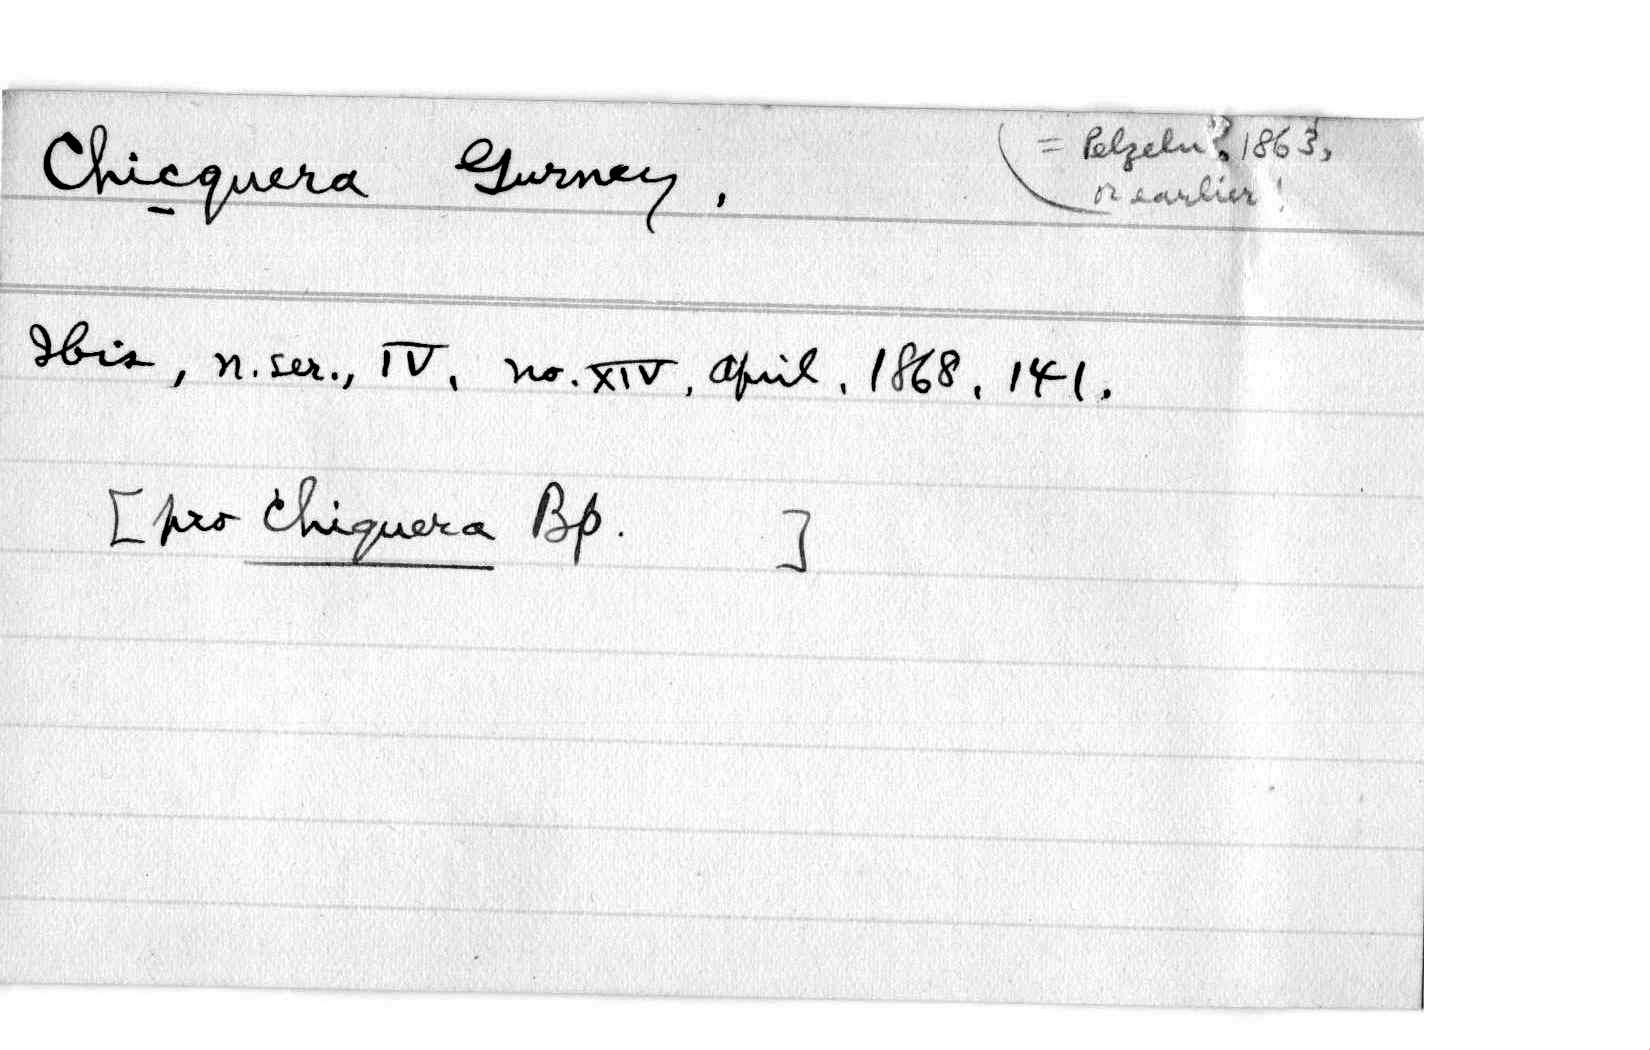 Chicquera Gurney,
= Pelzeln? 1863,
or earlier!
Ibis, n. ser., IV, no. XIV, April, 1868, 141.
[pro Chiquera Bp. ]